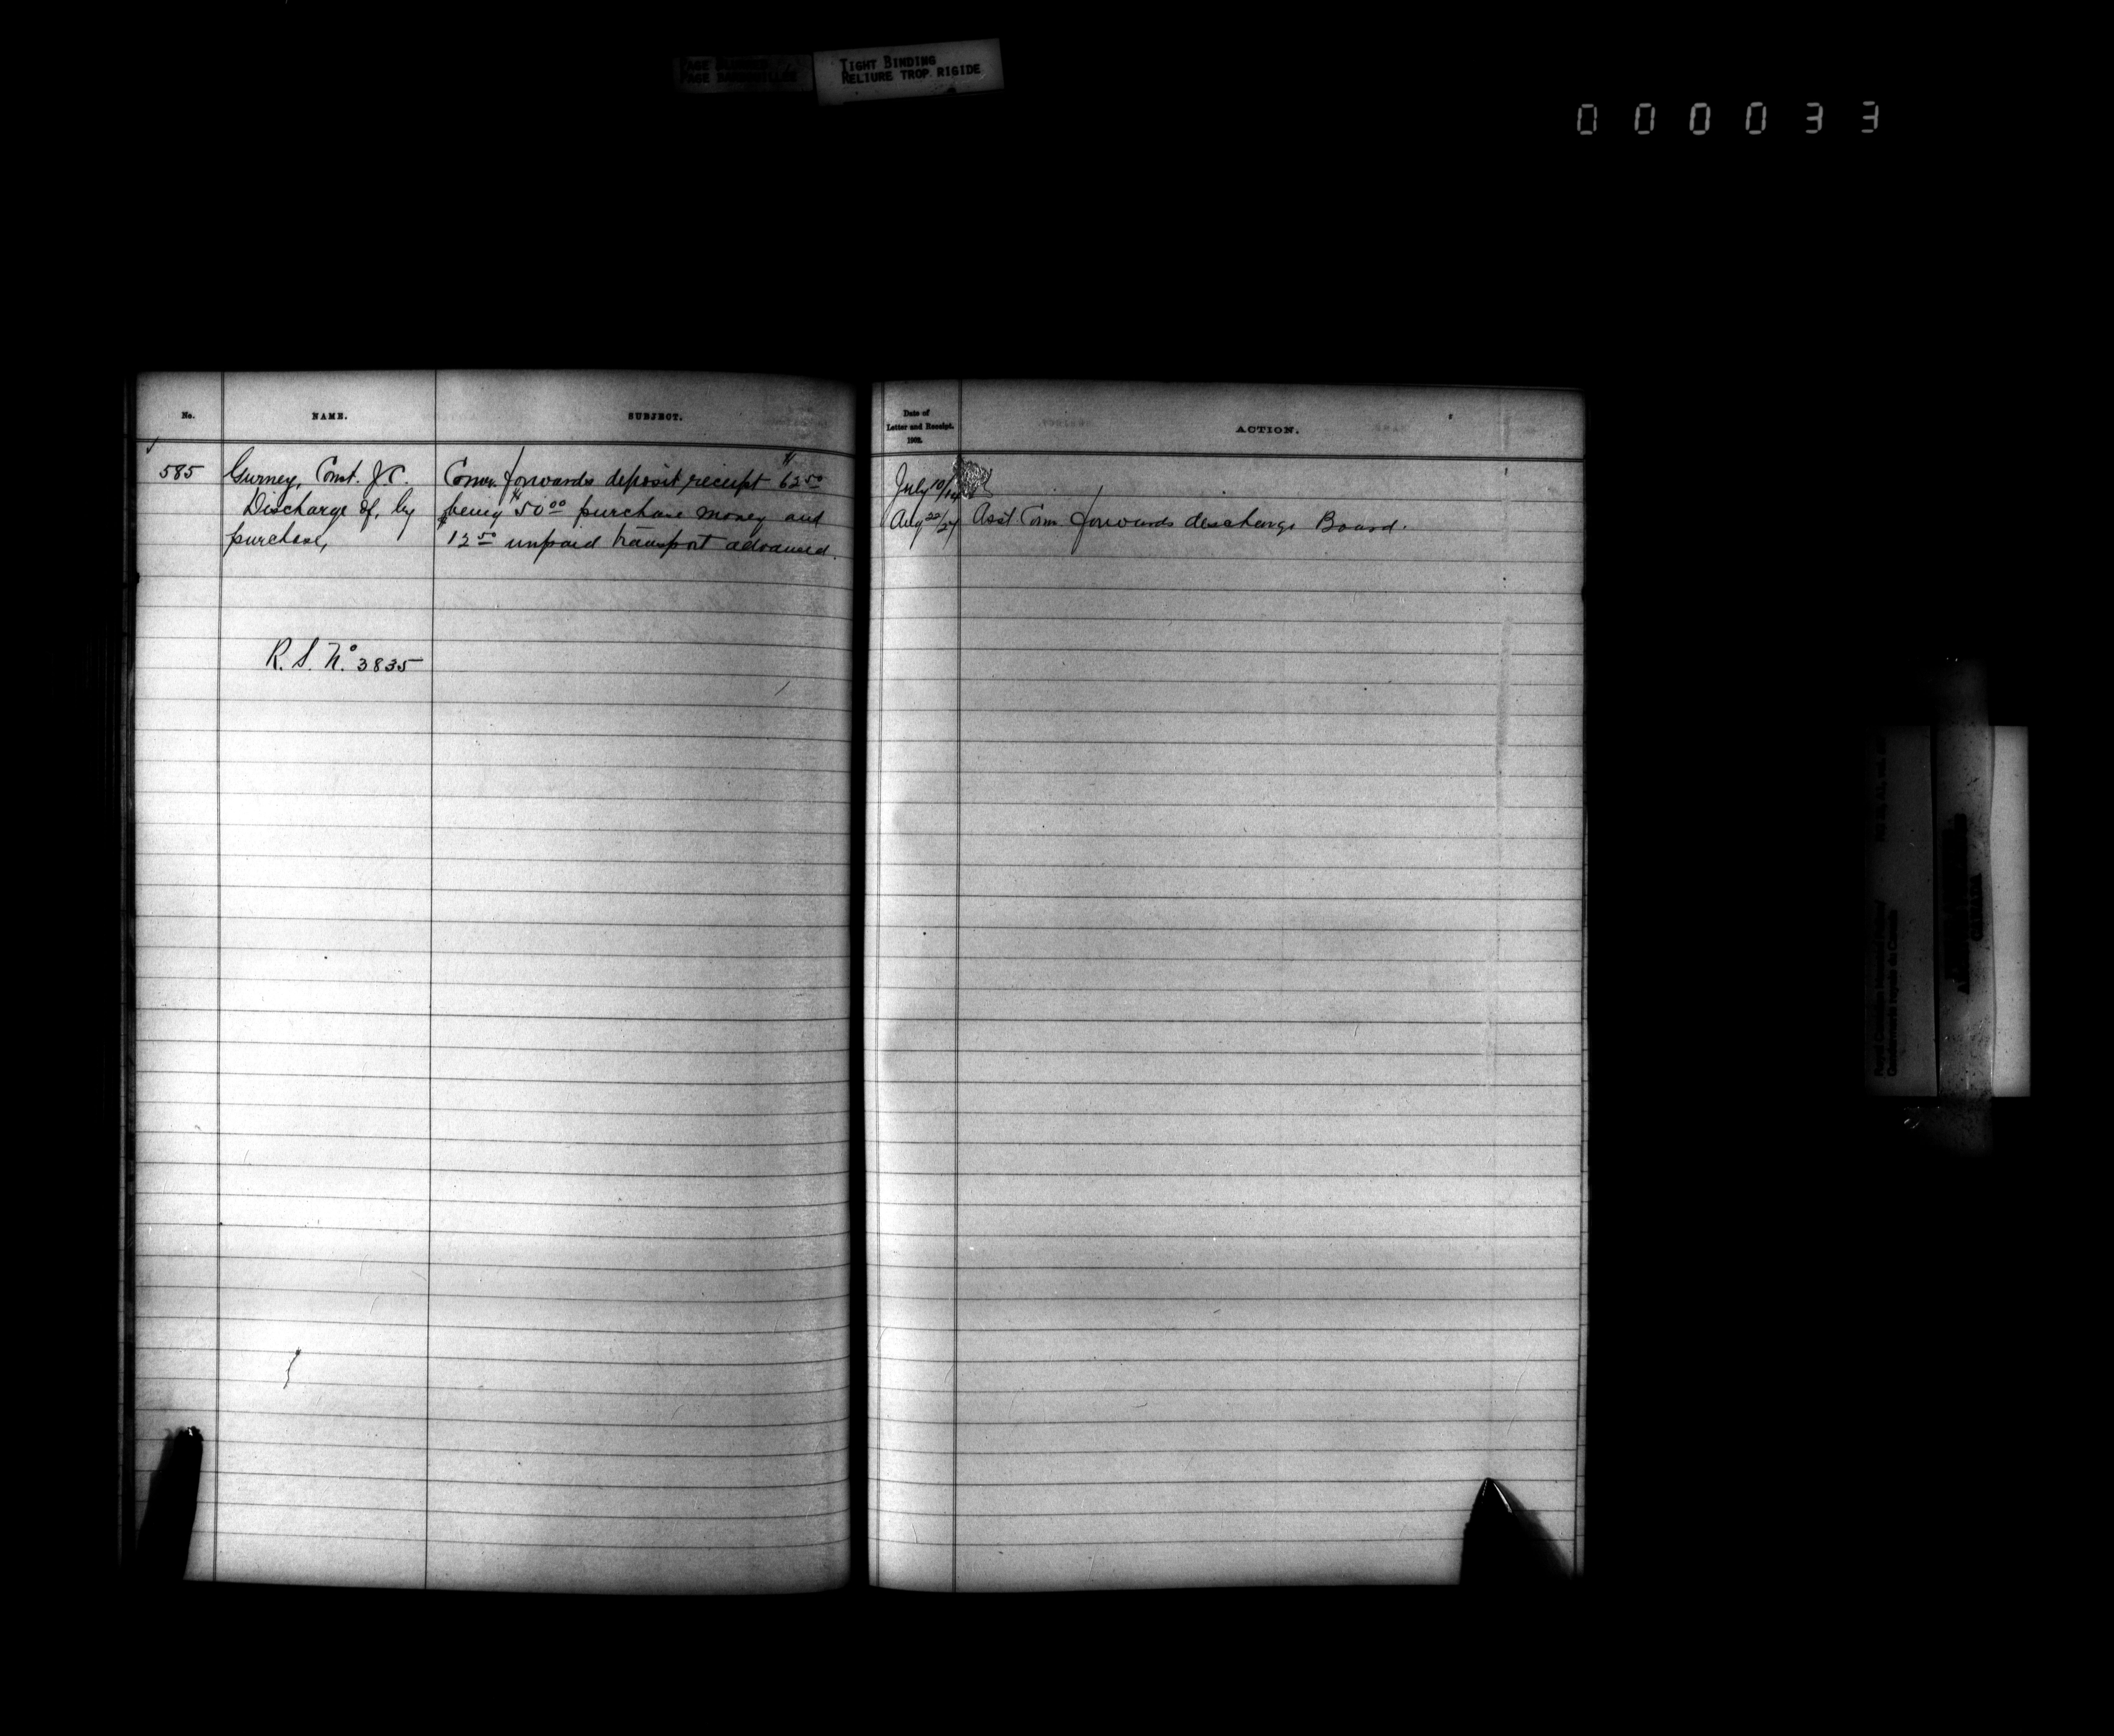 TIGHT BINDING
RELIURE TROP RIGIDE
000033
No.
NAME.
SUBJECT.
585
Gurney, Const. J.C.
Discharge of, by
purchase,
R. S. No. 3835
Comr. forwards deposit receipt $62.50
being $50.00 purchase money and
$12.50 unpaid transport advanced.
Date of
Letter and Receipt.
1902.
ACTION.
July 10/14
Aug 22/27
Asst Com forwards discharge Board.